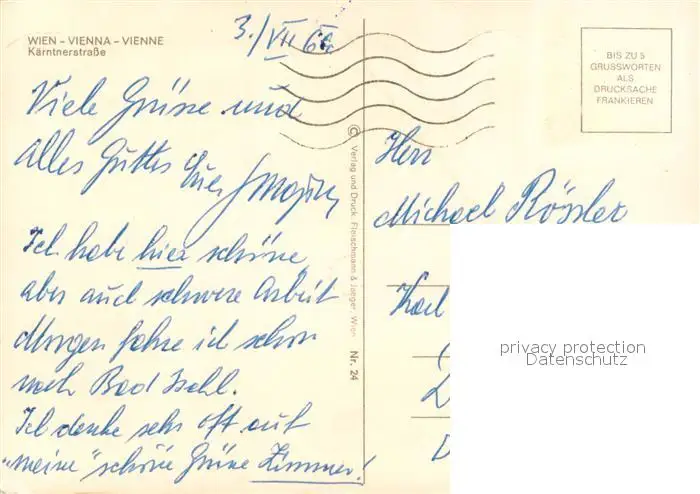 WIEN – VIENNA – VIENNE
Kärntnerstraße
3./VII 66
Viele Grüsse und
alles Guttes Euer
Ich habe hier schöne,
aber auch schwere Arbeit
Morgen fahre ich schon
nach Bad Ischl.
Ich denke sehr oft auf
"meine" schöne Grüne Zimmer!
© Verlag und Druck Fleischmann & Jaeger, Wien Nr. 24
BIS ZU 5
GRUSSWORTEN
ALS
DRUCKSACHE
FRANKIEREN
Herr
Michael Rössler
Karl
privacy protection
Datenschutz